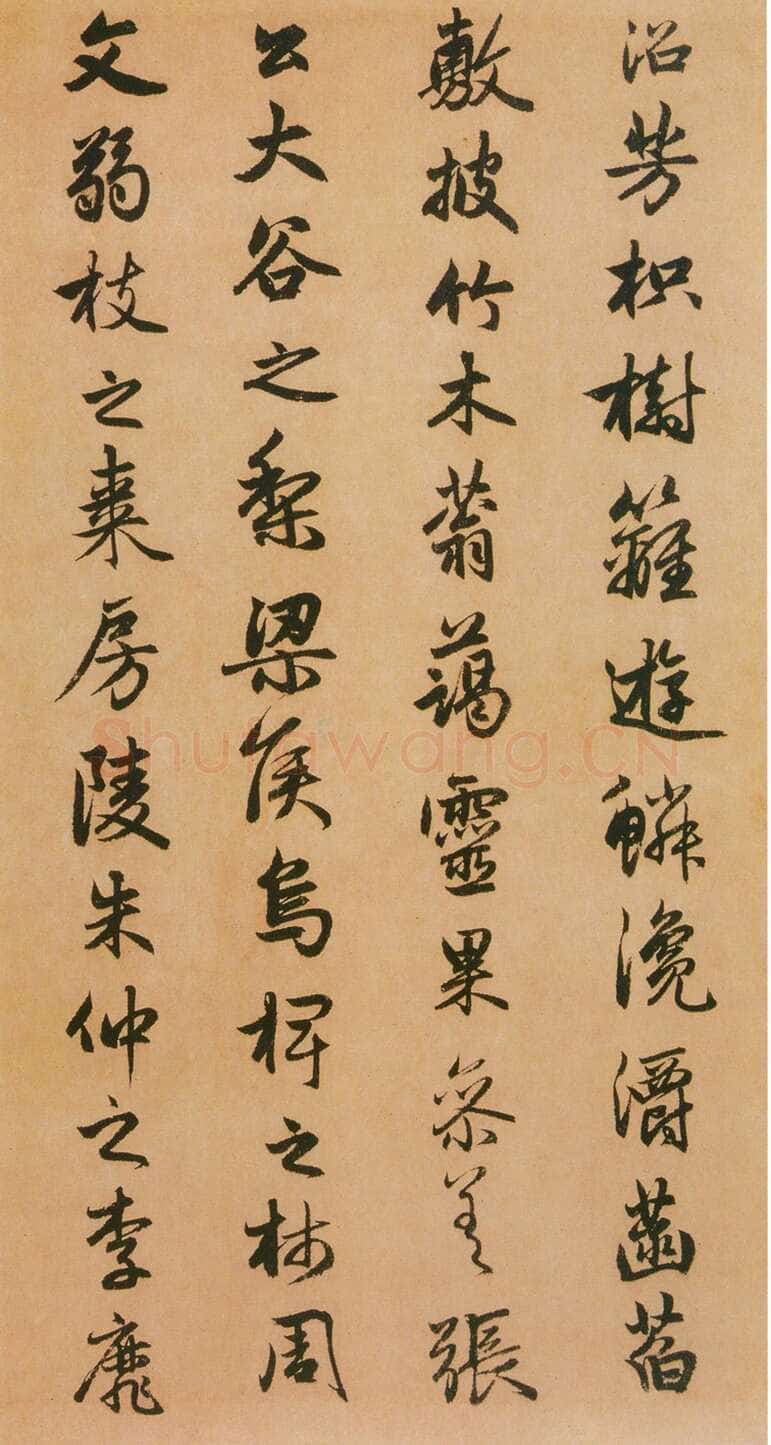 沼芳枳樹籬遊鱗瀺灂菡萏
敷披竹木蓊藹靈果參差張
公大谷之梨梁侯烏椑之柿周
文弱枝之棗房陵朱仲之李靡
Shufawang.CN